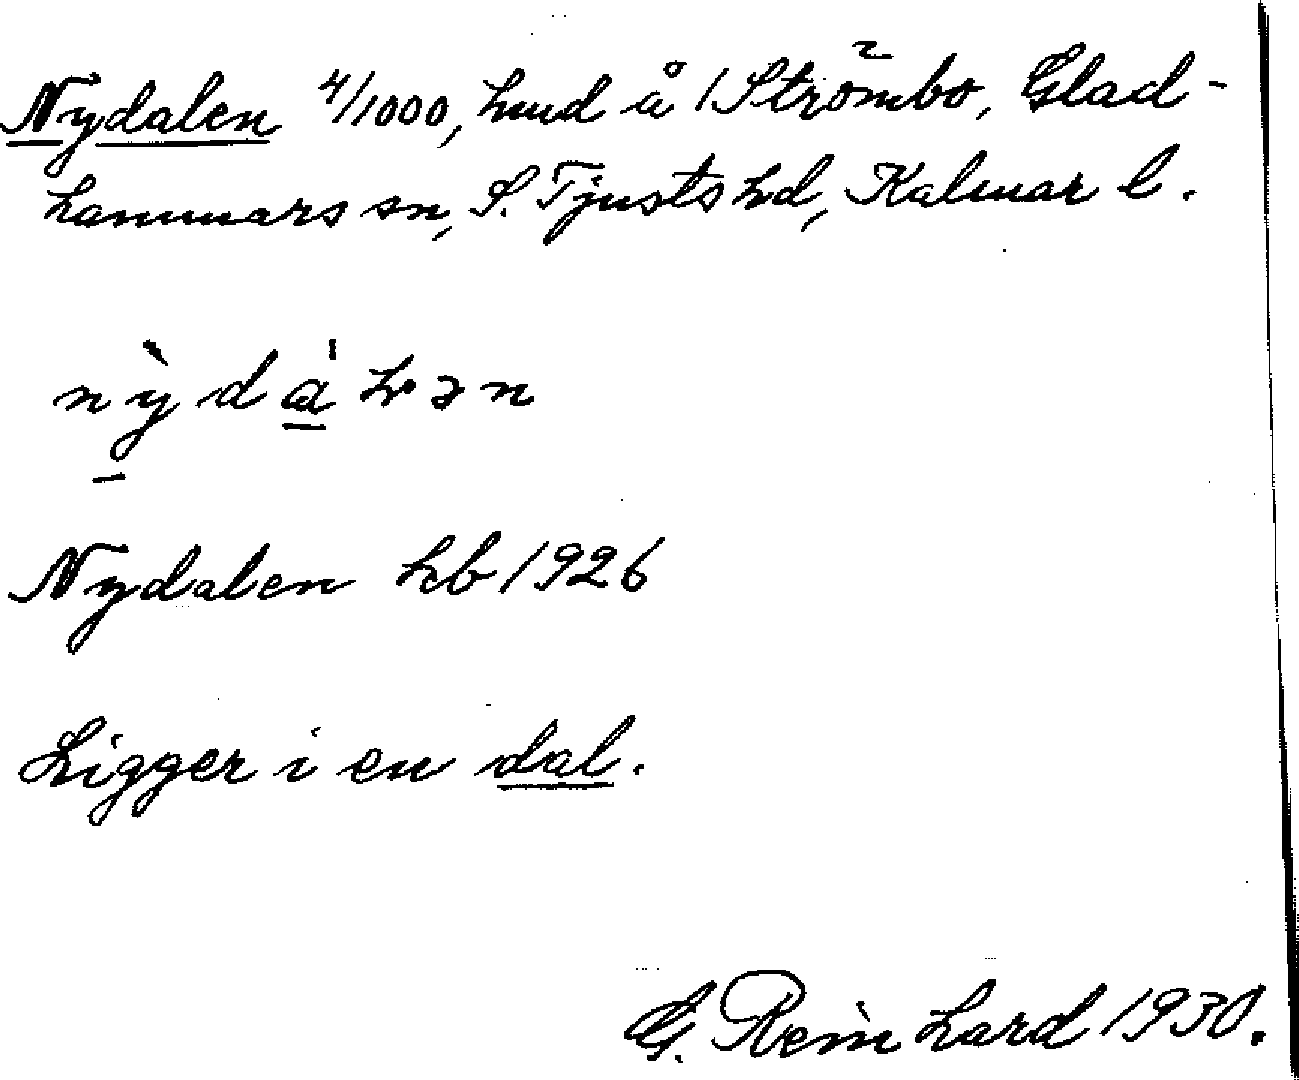 Nydalen 4/1000, hmd å 1 Strömbo, Glad-
hammars sn, S. Tjusts hd, Kalmar l.
nỳdáhən
Nydalen hb 1926
Ligger i en dal.
G. Reinhard 1930.